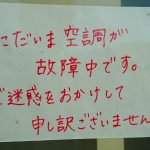 ただいま空調が
故障中です。
ご迷惑をおかけして
申し訳ございません